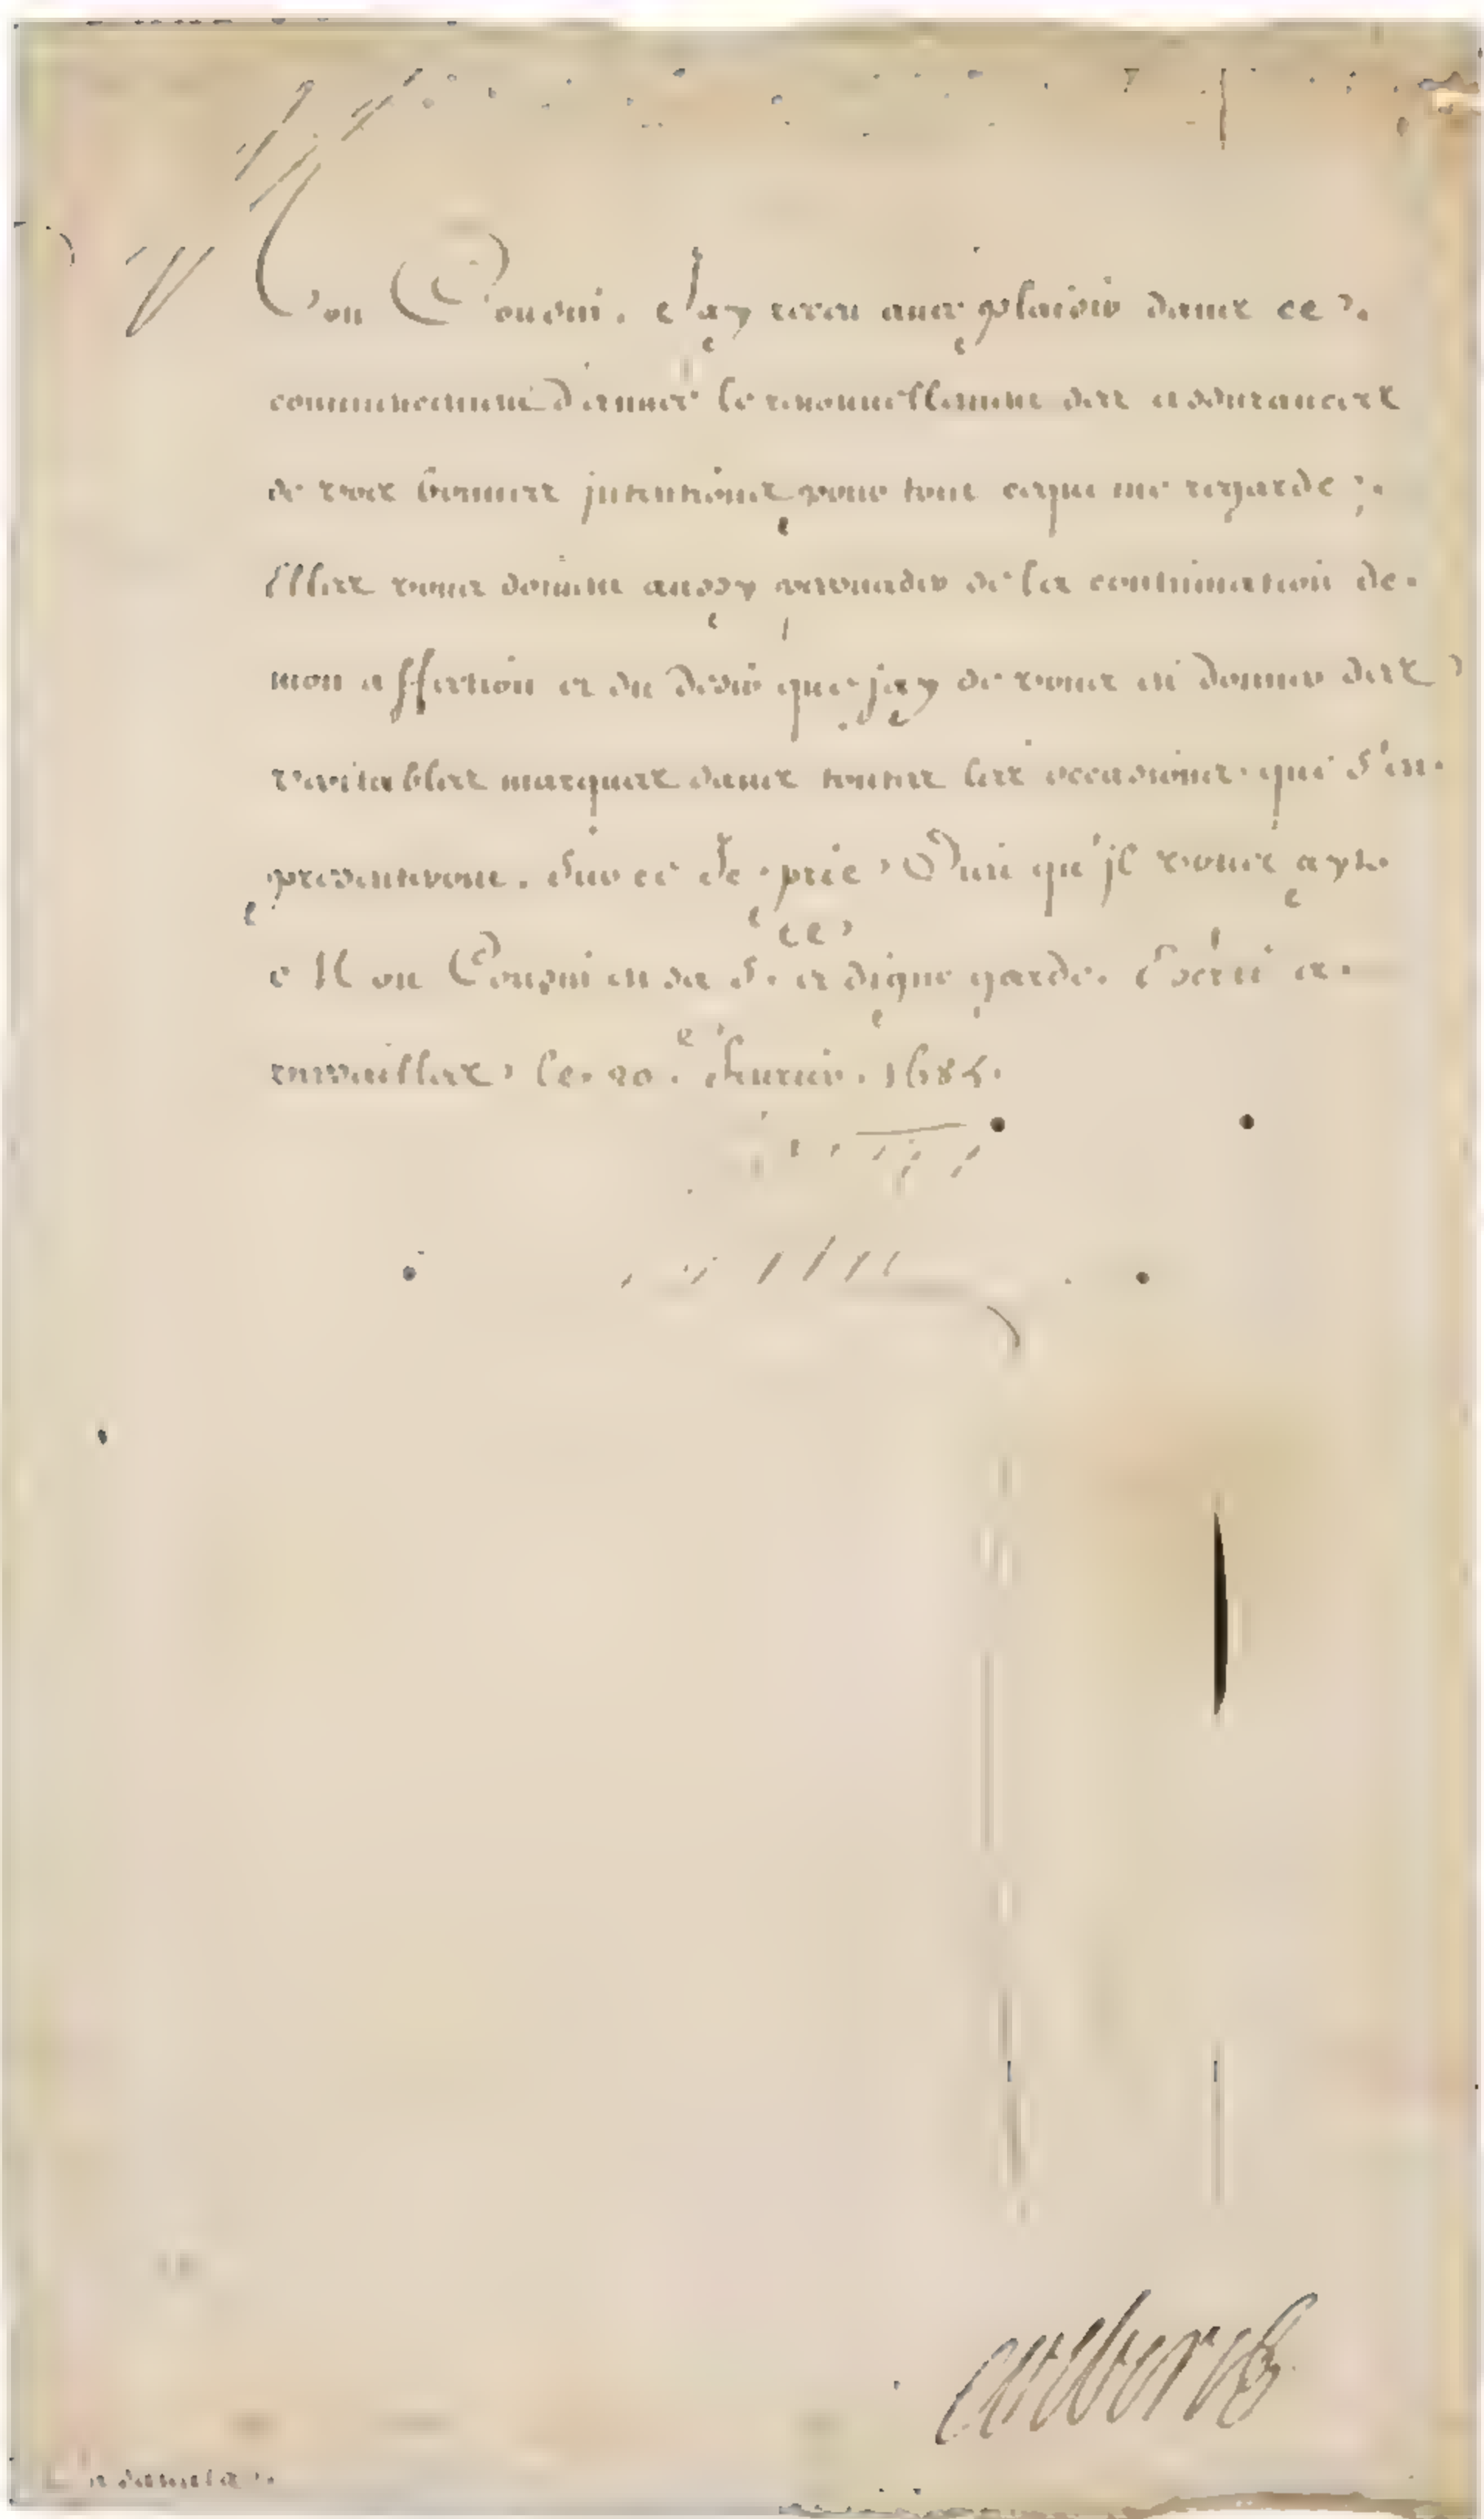 Mon Cousin. J'ay receu avec plaisir dans ce
commencement d'année le renouvellement des assurances
de vos bonnes jntentions pour tout ce qui me regarde;
Elles vous doivent aussy persuader de la continuation de
mon affection et du desir que j'ay de vous en donner des
veritables marques dans toutes les occasions qui s'en
presenteront. Sur ce Je prie Dieu qu'jl vous ayt
Mon Cousin en sa S.te et digne garde. Escrit a
versailles le 20.e feurier.
colbert